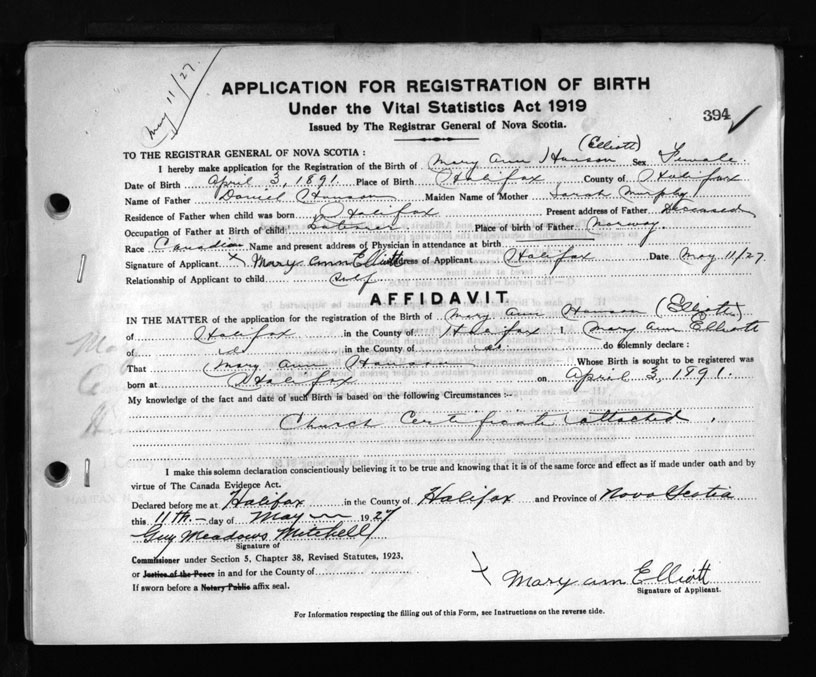 May 11/27.
APPLICATION FOR REGISTRATION OF BIRTH
Under the Vital Statistics Act 1919
Issued by The Registrar General of Nova Scotia.
394
(Elliott)
TO THE REGISTRAR GENERAL OF NOVA SCOTIA:
I hereby make application for the Registration of the Birth of Mary Ann Hanson Sex Female.
Date of Birth April 3, 1891. Place of Birth Halifax County of Halifax
Name of Father Daniel Hanson Maiden Name of Mother Sarah Murphy
Residence of Father when child was born Halifax Present address of Father Deceased
Occupation of Father at Birth of child: Laborer Place of birth of Father Norway.
Race Canadian Name and present address of Physician in attendance at birth
Signature of Applicant X Mary ann Elliott Address of Applicant Halifax Date May 11/27.
Relationship of Applicant to child Self
AFFIDAVIT
IN THE MATTER of the application for the registration of the Birth of Mary Ann Hanson (Elliott)
of Halifax in the County of Halifax I Mary Ann Elliott
of do in the County of do. do solemnly declare:
That Mary Ann Hanson Whose Birth is sought to be registered was
born at Halifax on April 3, 1891.
My knowledge of the fact and date of such Birth is based on the following Circumstances:-
Church Certificate attached.
I make this solemn declaration conscientiously believing it to be true and knowing that it is of the same force and effect as if made under oath and by
virtue of The Canada Evidence Act.
Declared before me at Halifax in the County of Halifax and Province of Nova Scotia
this 11th.- day of May 1927
Guy Meadows Mitchell
Signature of
Commissioner under Section 5, Chapter 38, Revised Statutes, 1923.
or Justice of the Peace in and for the County of
If sworn before a Notary Public affix seal.
X Mary ann Elliott
Signature of Applicant.
For Information respecting the filling out of this Form, see Instructions on the reverse tide.